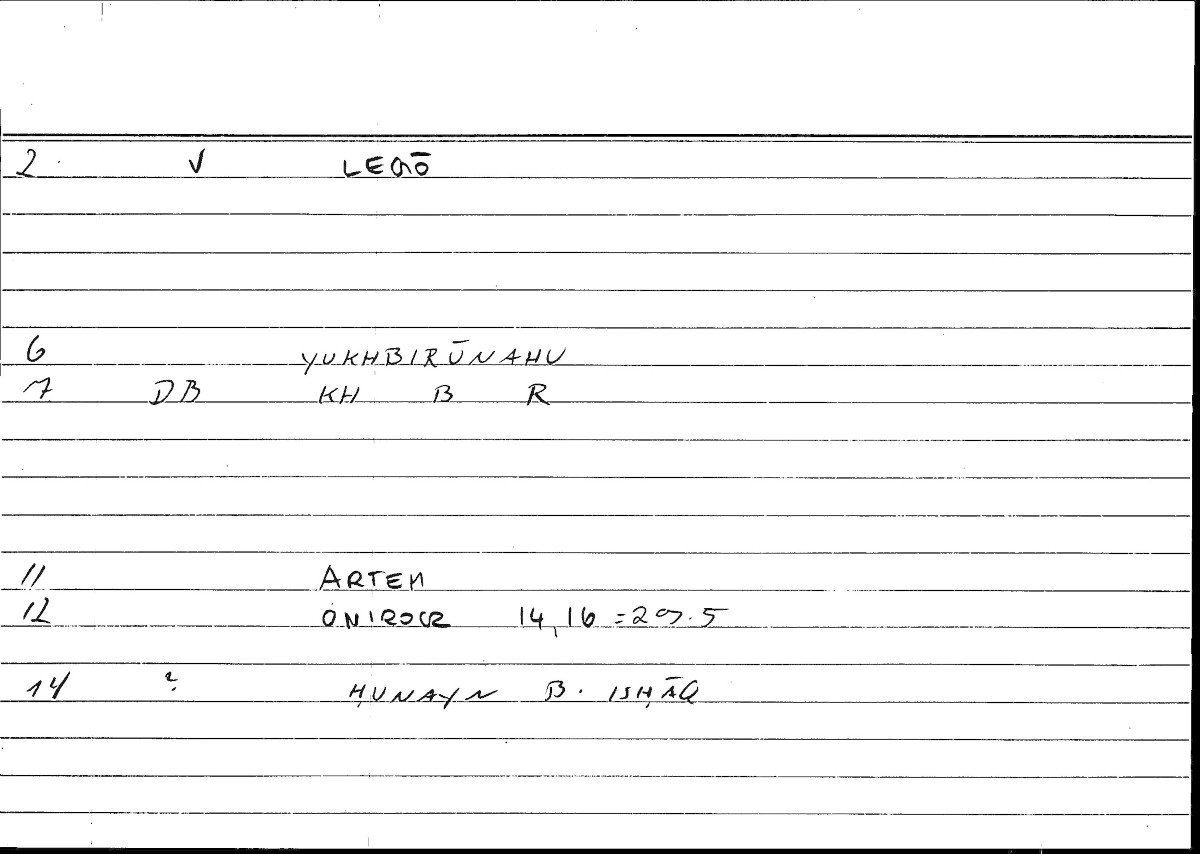 2. V LEGŌ
6 YUKHBIRŪNAHU
7 DB KH B R
11 ARTEM
12 ONIROCR 14,16 = 20.5
14 ? ḤUNAYN B. ISḤĀQ